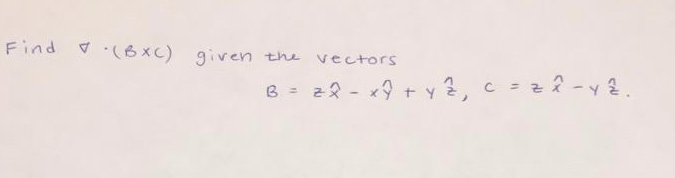 Find ∇ · (B×C) given the vectors
B = z x̂ - x ŷ + y ẑ, C = z x̂ - y ẑ.